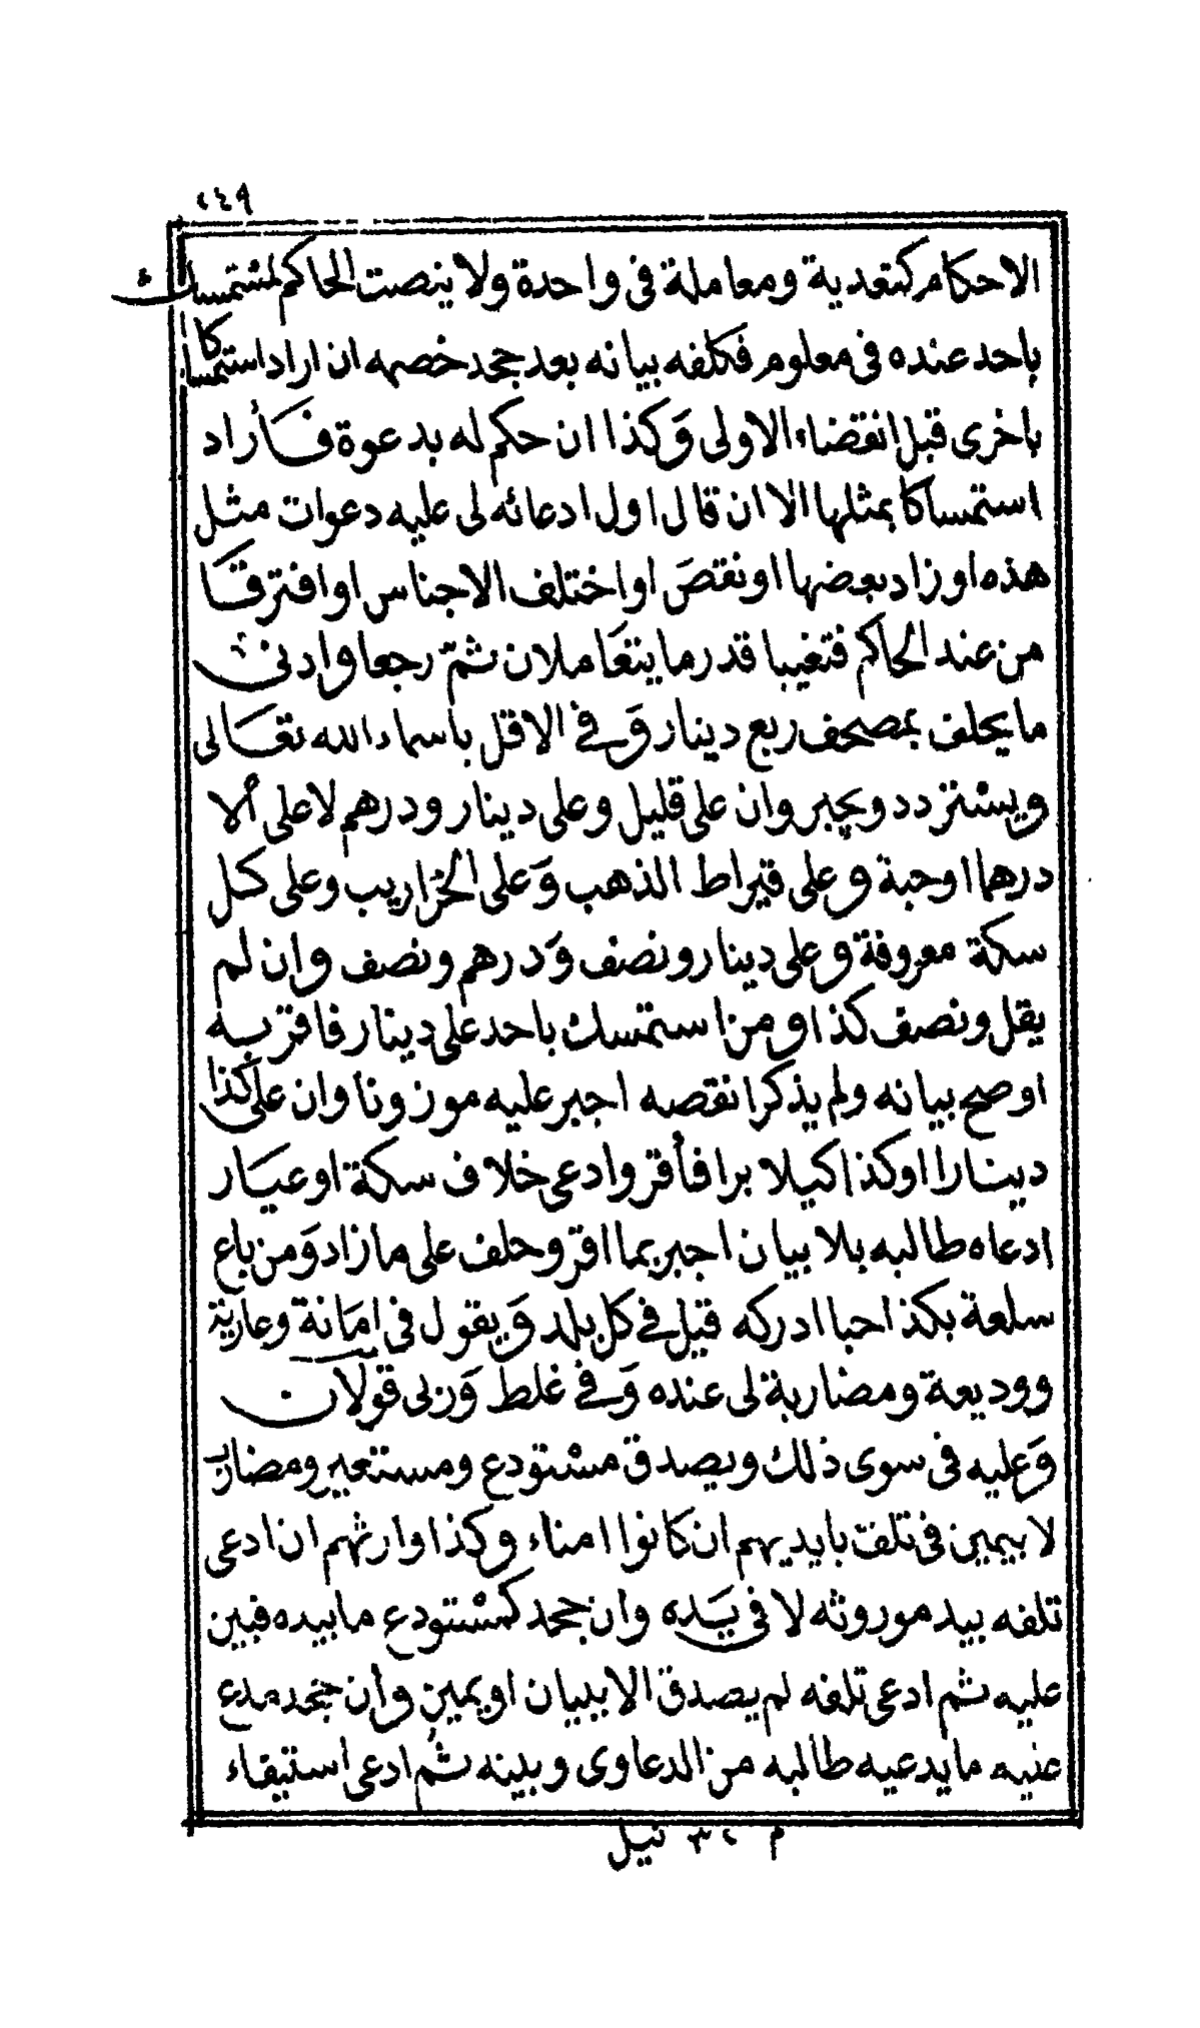 ٢٤٩
الاحكام كتعدية ومعاملة فى واحدة ولا ينصت الحاكم لمستمسك
باحد عنده فى معلوم فكلفه بيانه بعد جحد خصمه ان اراد استمساكا
باخرى قبل انقضاء الاولى وَكذا ان حكم له بدعوة فَأراد
استمساكا بمثلها الا ان قال اول ادعائه لى عليه دعوات مثل
هذه او زاد بعضها او نقصَ او اختلف الاجناس او افترقَا
من عند الحاكم فتغيبا قدر ما يتعَاملان ثمّ رجعا وادنى
ما يحلف بمصحف ربع دينار وَفى الاقل باسماء الله تعَالى
ويسترزدد ويجبر وان على قليل وعلى دينار ودرهم لا على ألا
درهما اوحبة وعلى قيراط الذهب وَعلى الخراريب وعلى كل
سكة معروفة وعلى دينار ونصف وَدرهم ونصف وان لم
يقل ونصف كذا ومن استمسك باحد على دينار فاقر به
او صح بيانه ولم يذكرا نقصه اجبر عليه موزونا وان على كذا
دينارا او كذا كيلا برا فأقر وادعى خلاف سكة او عيَار
ادعاه طالبه بلا بيان اجبر بما اقر وحلف على ما زاد وَمن باع
سلعة بكذا حبا ادركه قيل فى كل بلد وَيقول فى امَانة وعارية
ووديعة ومضاربة لى عنده وَفى غلط وَزنى قولان
وَعليه فى سوى ذلك ويصدق مستودع ومستعير ومضارب
لا بيمين فى تلف بايديهم ان كانوا امناء وكذا وارثهم ان ادعى
تلفه بيد موروثه لا فى يَده وان جحد كمستودع ما بيده فبين
عليه ثم ادعى تلفه لم يصدق الا ببيان او يمين وان جحد مدع
عليه ما يدعيه طالبه من الدعاوى وبينه ثم ادعى استيفاء
م ٣٢ نيل